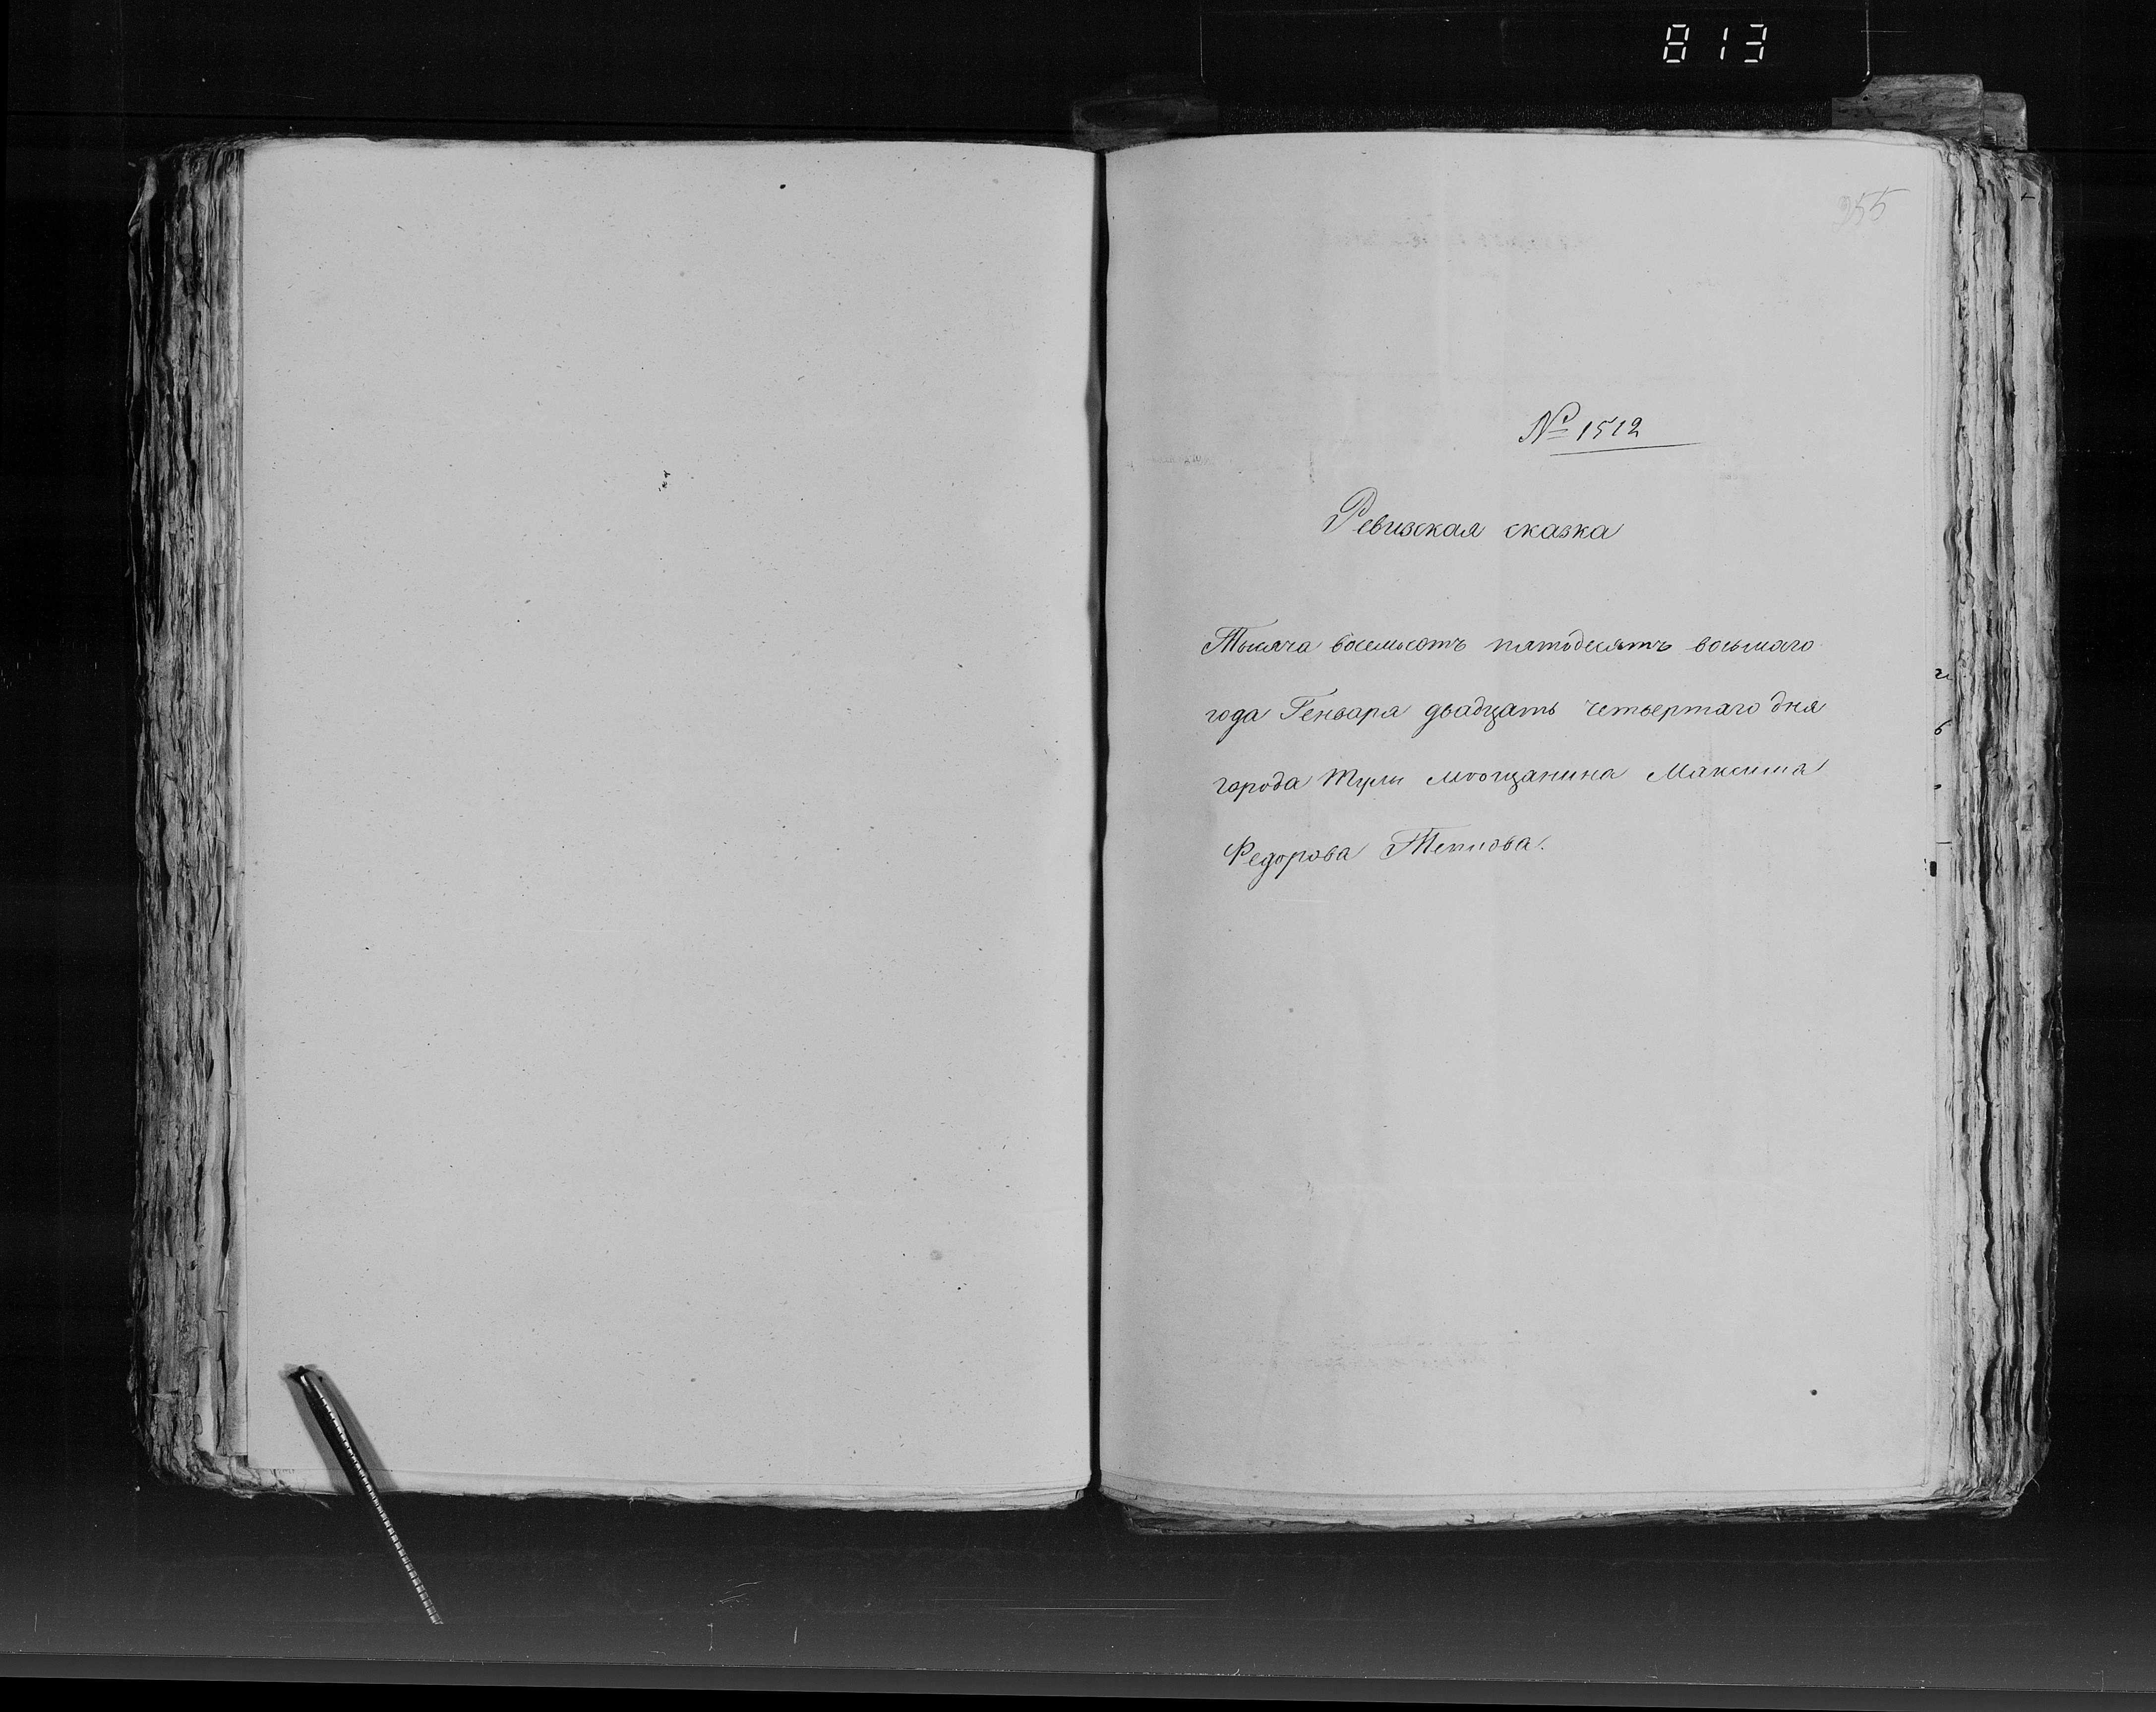 813
955
№ 1512
Ревизская сказка
Тысяча восемьсотъ пятьдесятъ восьмаго
года Генваря двадцать четвертаго дня
города Тулы мѣщанина Максима
Федорова